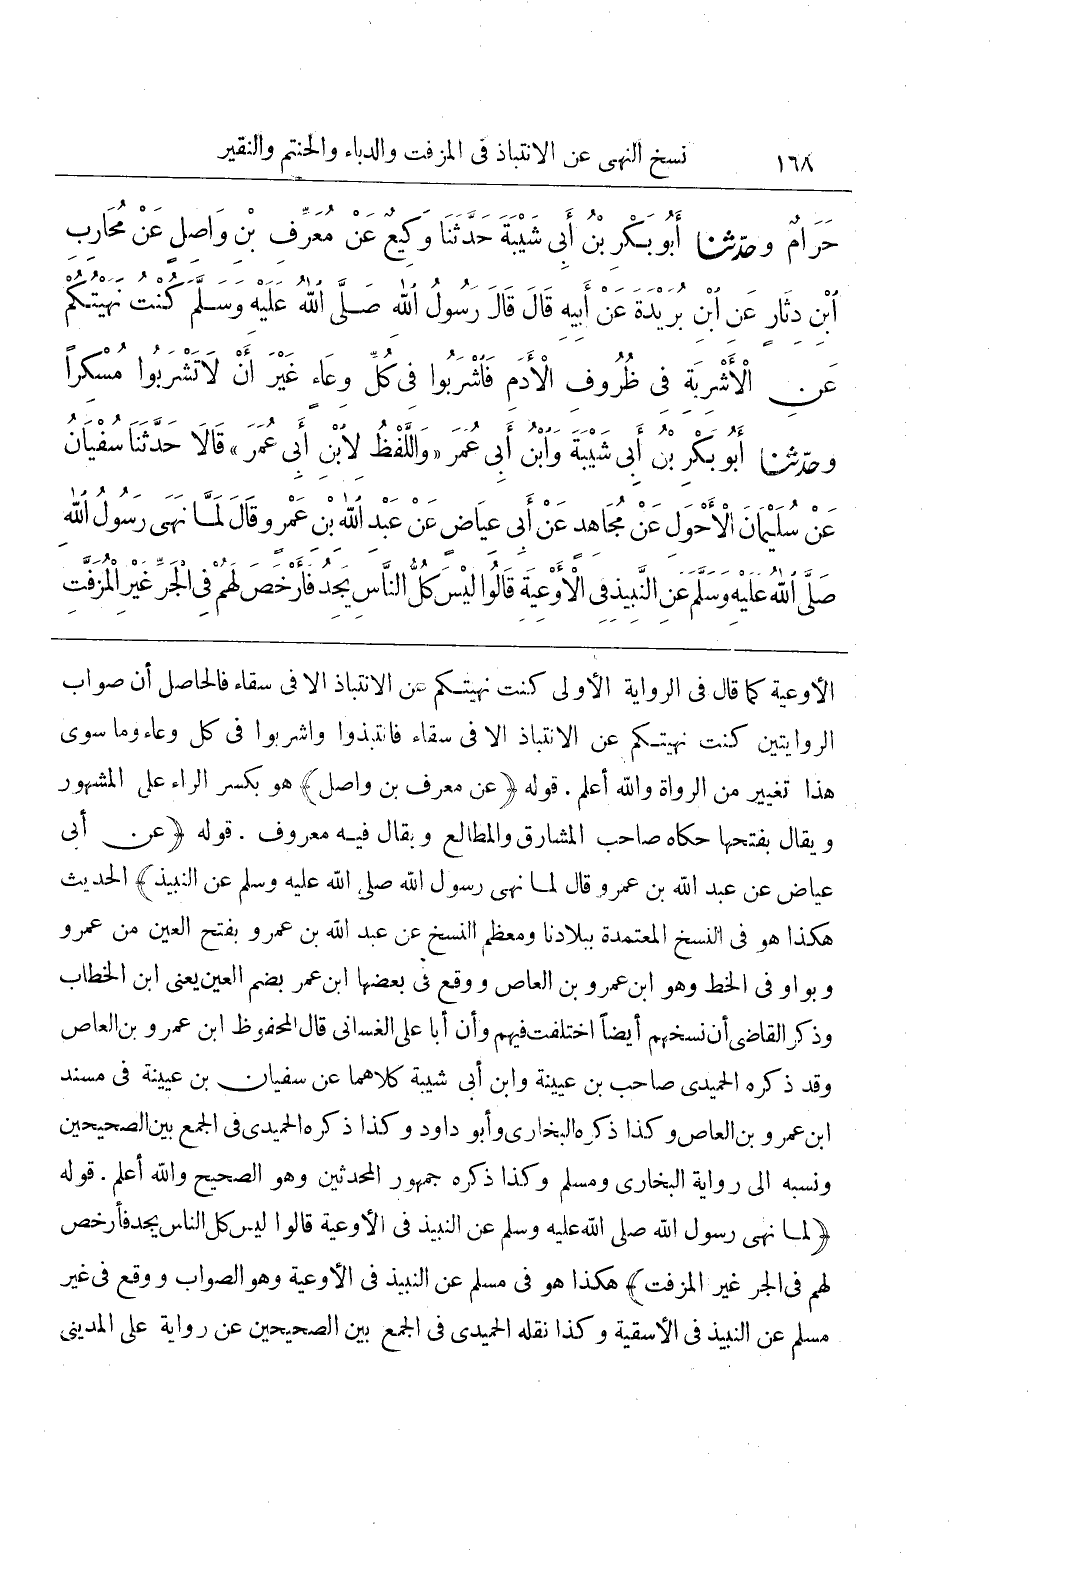 ١٦٨ نسخ النهى عن الانتباذ فى المزفت والدباء والحنتم والنقير
حَرَامٌ وحَدَّثَنَا أَبُو بَكْرِ بْنُ أَبِى شَيْبَةَ حَدَّثَنَا وَكِيعٌ عَنْ مُعَرِّفِ بْنِ وَاصِلٍ عَنْ مُحَارِبِ
ٱبْنِ دِثَارٍ عَنِ ٱبْنِ بُرَيْدَةَ عَنْ أَبِيهِ قَالَ قَالَ رَسُولُ ٱللّٰهِ صَلَّى ٱللّٰهُ عَلَيْهِ وَسَلَّمَ كُنْتُ نَهَيْتُكُمْ
عَنِ الْأَشْرِبَةِ فِى ظُرُوفِ الْأَدَمِ فَاشْرَبُوا فِى كُلِّ وِعَاءٍ غَيْرَ أَنْ لَا تَشْرَبُوا مُسْكِراً
وحَدَّثَنَا أَبُو بَكْرِ بْنُ أَبِى شَيْبَةَ وَٱبْنُ أَبِى عُمَرَ «وَاللَّفْظُ لِابْنِ أَبِى عُمَرَ» قَالَا حَدَّثَنَا سُفْيَانُ
عَنْ سُلَيْمَانَ الْأَحْوَلِ عَنْ مُجَاهِدٍ عَنْ أَبِى عِيَاضٍ عَنْ عَبْدِ ٱللّٰهِ بْنِ عَمْرٍو قَالَ لَمَّا نَهَى رَسُولُ ٱللّٰهِ
صَلَّى ٱللّٰهُ عَلَيْهِ وَسَلَّمَ عَنِ النَّبِيذِ فِى الْأَوْعِيَةِ قَالُوا لَيْسَ كُلُّ النَّاسِ يَجِدُ فَأَرْخَصَ لَهُمْ فِى الْجَرِّ غَيْرِ الْمُزَفَّتِ
الأوعية كما قال فى الرواية الأولى كنت نهيتكم عن الانتباذ الا فى سقاء فالحاصل أن صواب
الروايتين كنت نهيتكم عن الانتباذ الا فى سقاء فانتبذوا واشربوا فى كل وعاء وما سوى
هذا تغيير من الرواة والله أعلم . قوله ﴿عن معرف بن واصل﴾ هو بكسر الراء على المشهور
ويقال بفتحها حكاه صاحب المشارق والمطالع ويقال فيه معروف . قوله ﴿عن أبى
عياض عن عبد الله بن عمرو قال لما نهى رسول الله صلى الله عليه وسلم عن النبيذ﴾ الحديث
هكذا هو فى النسخ المعتمدة ببلادنا ومعظم النسخ عن عبد الله بن عمرو بفتح العين من عمرو
وبواو فى الخط وهو ابن عمرو بن العاص ووقع فى بعضها ابن عمر بضم العين يعنى ابن الخطاب
وذكر القاضى أن نسخهم أيضاً اختلفت فيهم وأن أبا على الغسانى قال المحفوظ ابن عمرو بن العاص
وقد ذكره الحميدى صاحب بن عيينة وابن أبى شيبة كلاهما عن سفيان بن عيينة فى مسند
ابن عمرو بن العاص وكذا ذكره البخارى وأبو داود وكذا ذكره الحميدى فى الجمع بين الصحيحين
ونسبه الى رواية البخارى ومسلم وكذا ذكره جمهور المحدثين وهو الصحيح والله أعلم . قوله
﴿لما نهى رسول الله صلى الله عليه وسلم عن النبيذ فى الأوعية قالوا ليس كل الناس يجد فأرخص
لهم فى الجر غير المزفت﴾ هكذا هو فى مسلم عن النبيذ فى الأوعية وهو الصواب ووقع فى غير
مسلم عن النبيذ فى الأسقية وكذا نقله الحميدى فى الجمع بين الصحيحين عن رواية على المدينى